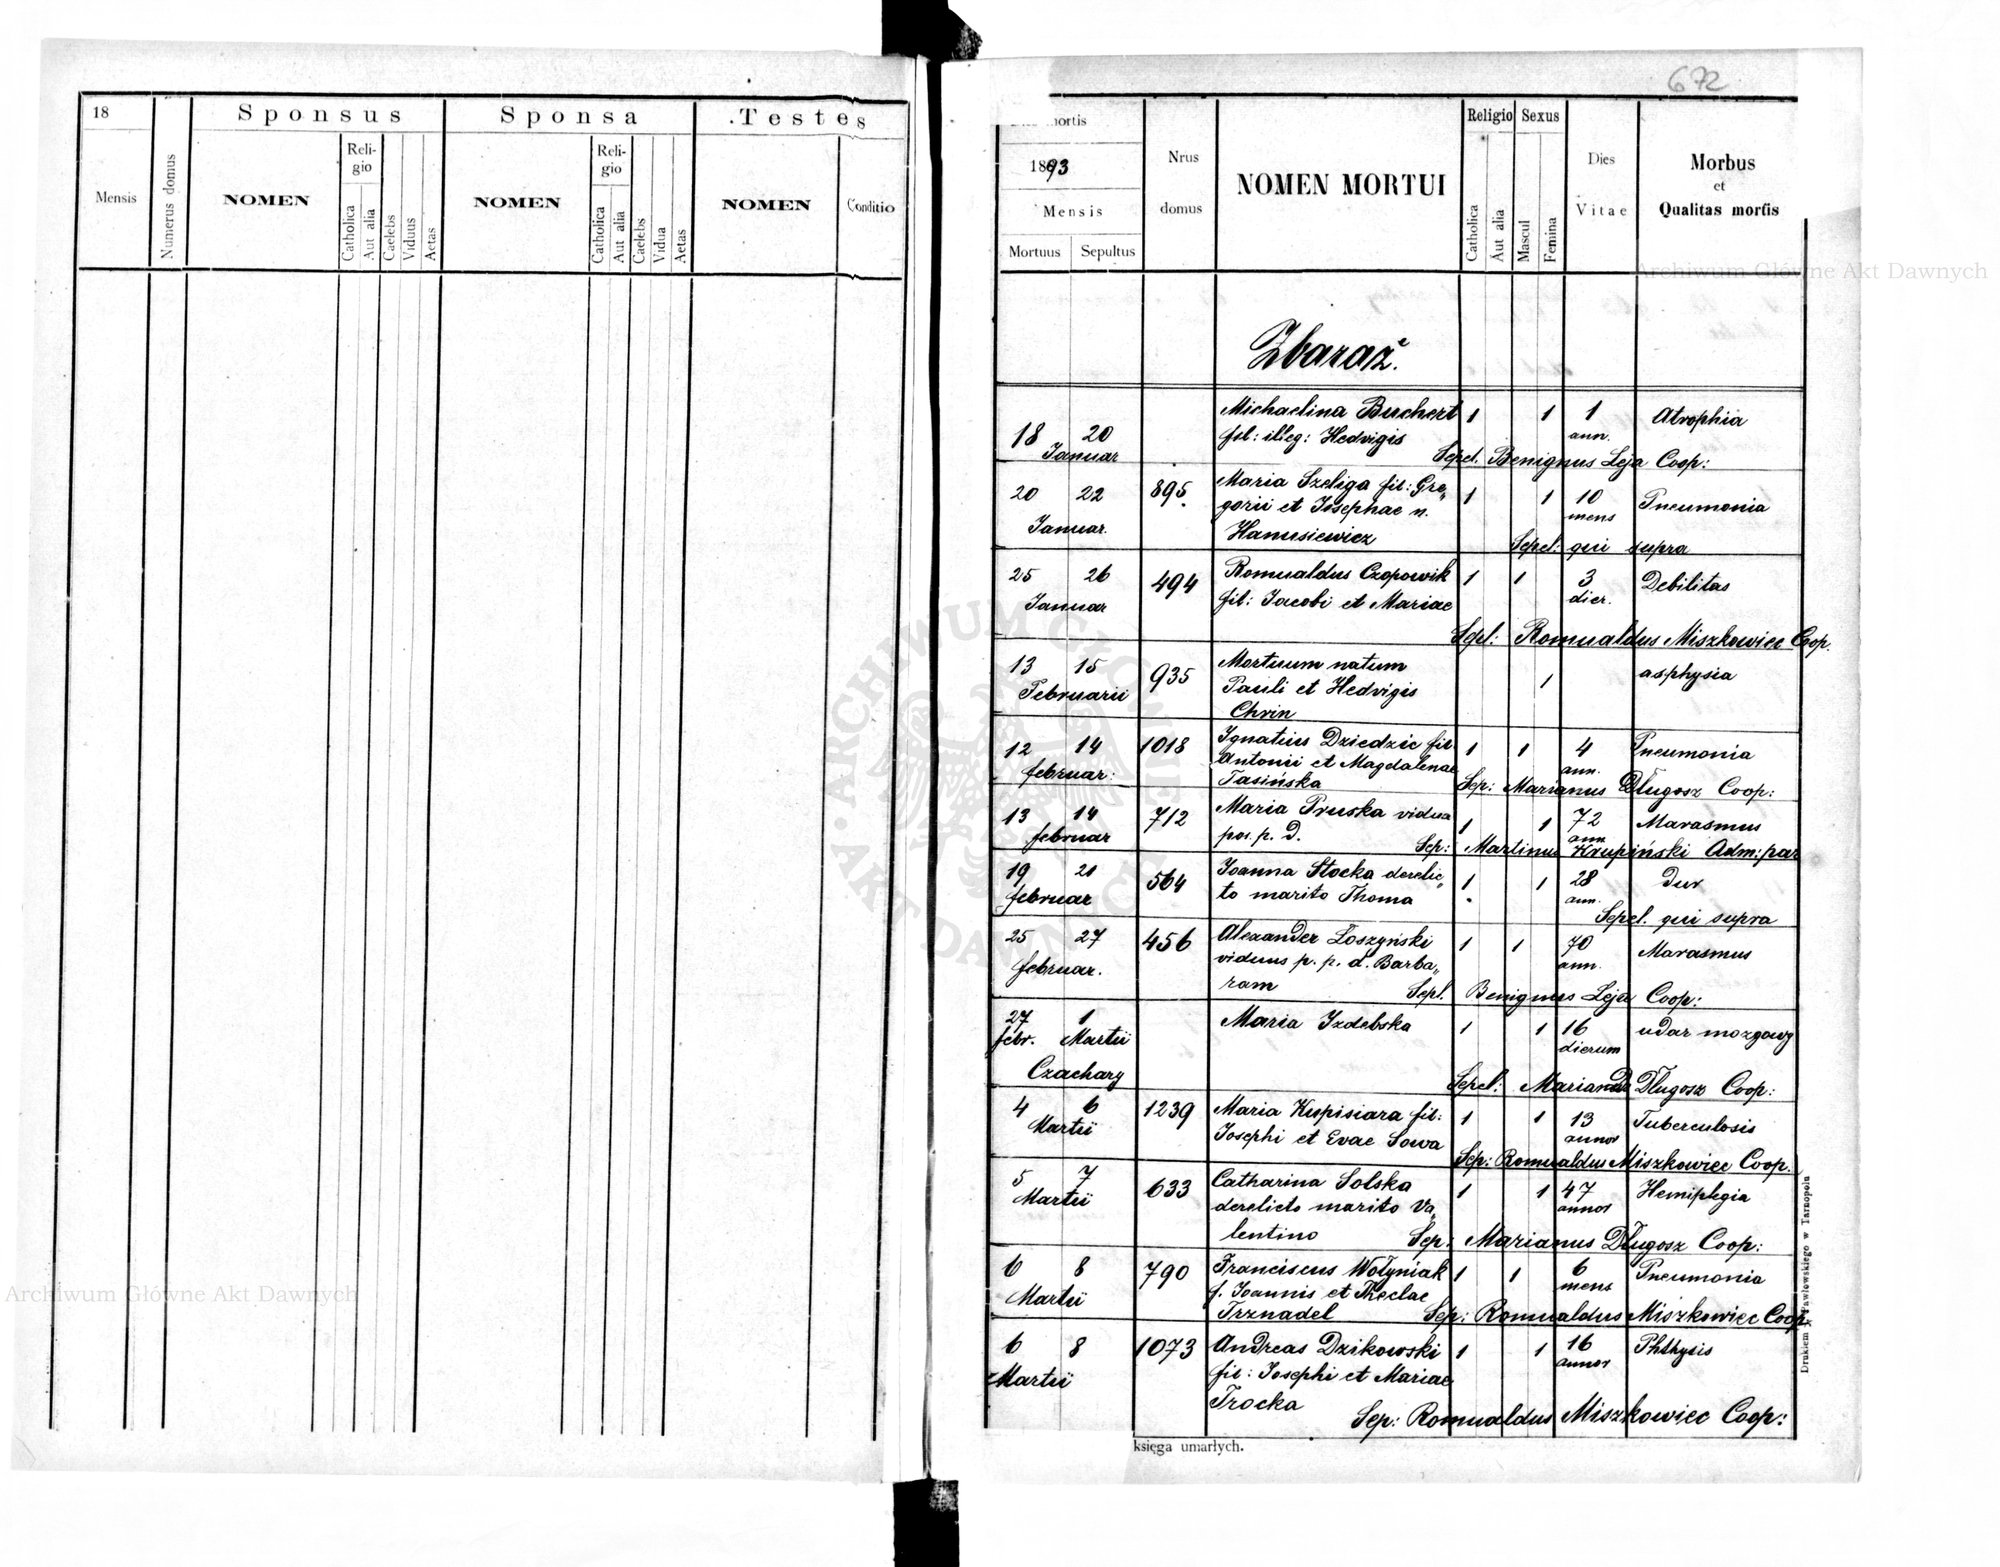 672
18
Mensis
Numerus domus
Sponsus
NOMEN
Reli-
gio
Catholica
Aut alia
Caelebs
Viduus
Aetas
Sponsa
NOMEN
Reli-
gio
Catholica
Aut alia
Caelebs
Vidua
Aetas
Testes
NOMEN
Conditio
mortis
1893
Mensis
Mortuus
Sepultus
Nrus
domus
NOMEN MORTUI
Religio
Catholica
Aut alia
Sexus
Mascul
Femina
Dies
Vitae
Morbus
et
Qualitas mortis
Zbaraż.
18 20
Januar
Michaelina Buchert
fil: illeg: Hedvigis
1 1 1
ann.
Atrophia
Sepel. Benignus Leja Coop:
20 22
Januar.
895.
Maria Szeliga fil: Gre„
gorii et Josephae n.
Hanusiewicz
1 1 10
mens
Pneumonia
Sepel: qui supra
25 26
Januar
494
Romualdus Czopowik
fil: Jacobi et Mariae
1 1 3
dier.
Debilitas
Sepl: Romualdus Miszkowiec Coop.
13 15
Februarii
935
Mortuum natum
Pauli et Hedvigis
Chrin
1
asphysia
12 14
februar:
1018
Ignatius Dziedzic fil
Antonii et Magdalenae
Tasińska
1 1 4
ann.
Pneumonia
Sep: Marianus Długosz Coop:
13 14
februar
712
Maria Pruska vidua
pos. p. D.
1 1 72
ann
Marasmus
Sep: Martinus Krupiński Adm: par
19 21
februar
564
Joanna Stocka derelic„
to marito Thoma
1 1 28
ann.
Dur
Sepel. qui supra
25 27
februar.
456
Alexander Łoszyński
viduus p. p. d. Barba„
ram
1 1 70
ann.
Marasmus
Sepl. Benignus Leja Coop:
27 1
febr. Martii
Czachary
Maria Izdebska
1 1 16
dierum
udar mozgowy
Sepel: Marianus Długosz Coop:
4 6
Martii
1239
Maria Kupisiara fil:
Josephi et Evae Sowa
1 1 13
annor
Tuberculosis
Sep: Romualdus Miszkowiec Coop.
5 7
Martii
633
Catharina Solska
derelicto marito Va„
lentino
1 1 47
annor
Hemiplegia
Sep: Marianus Długosz Coop:
6 8
Martii
790
Franciscus Wołyniak
f. Joannis et Theclae
Trznadel
1 1 6
mens
Pneumonia
Sep: Romualdus Miszkowiec Coop
6 8
Martii
1073
Andreas Dzikowski
fil: Josephi et Mariae
Trocka
1 1 16
annor
Phthysis
Sep: Romualdus Miszkowiec Coop:
księga umarłych.
Pawłowskiego w Tarnopolu
Archiwum Główne Akt Dawnych
Archiwum Główne Akt Dawnych
ARCHIWUM GŁÓWNE AKT DAWNYCH